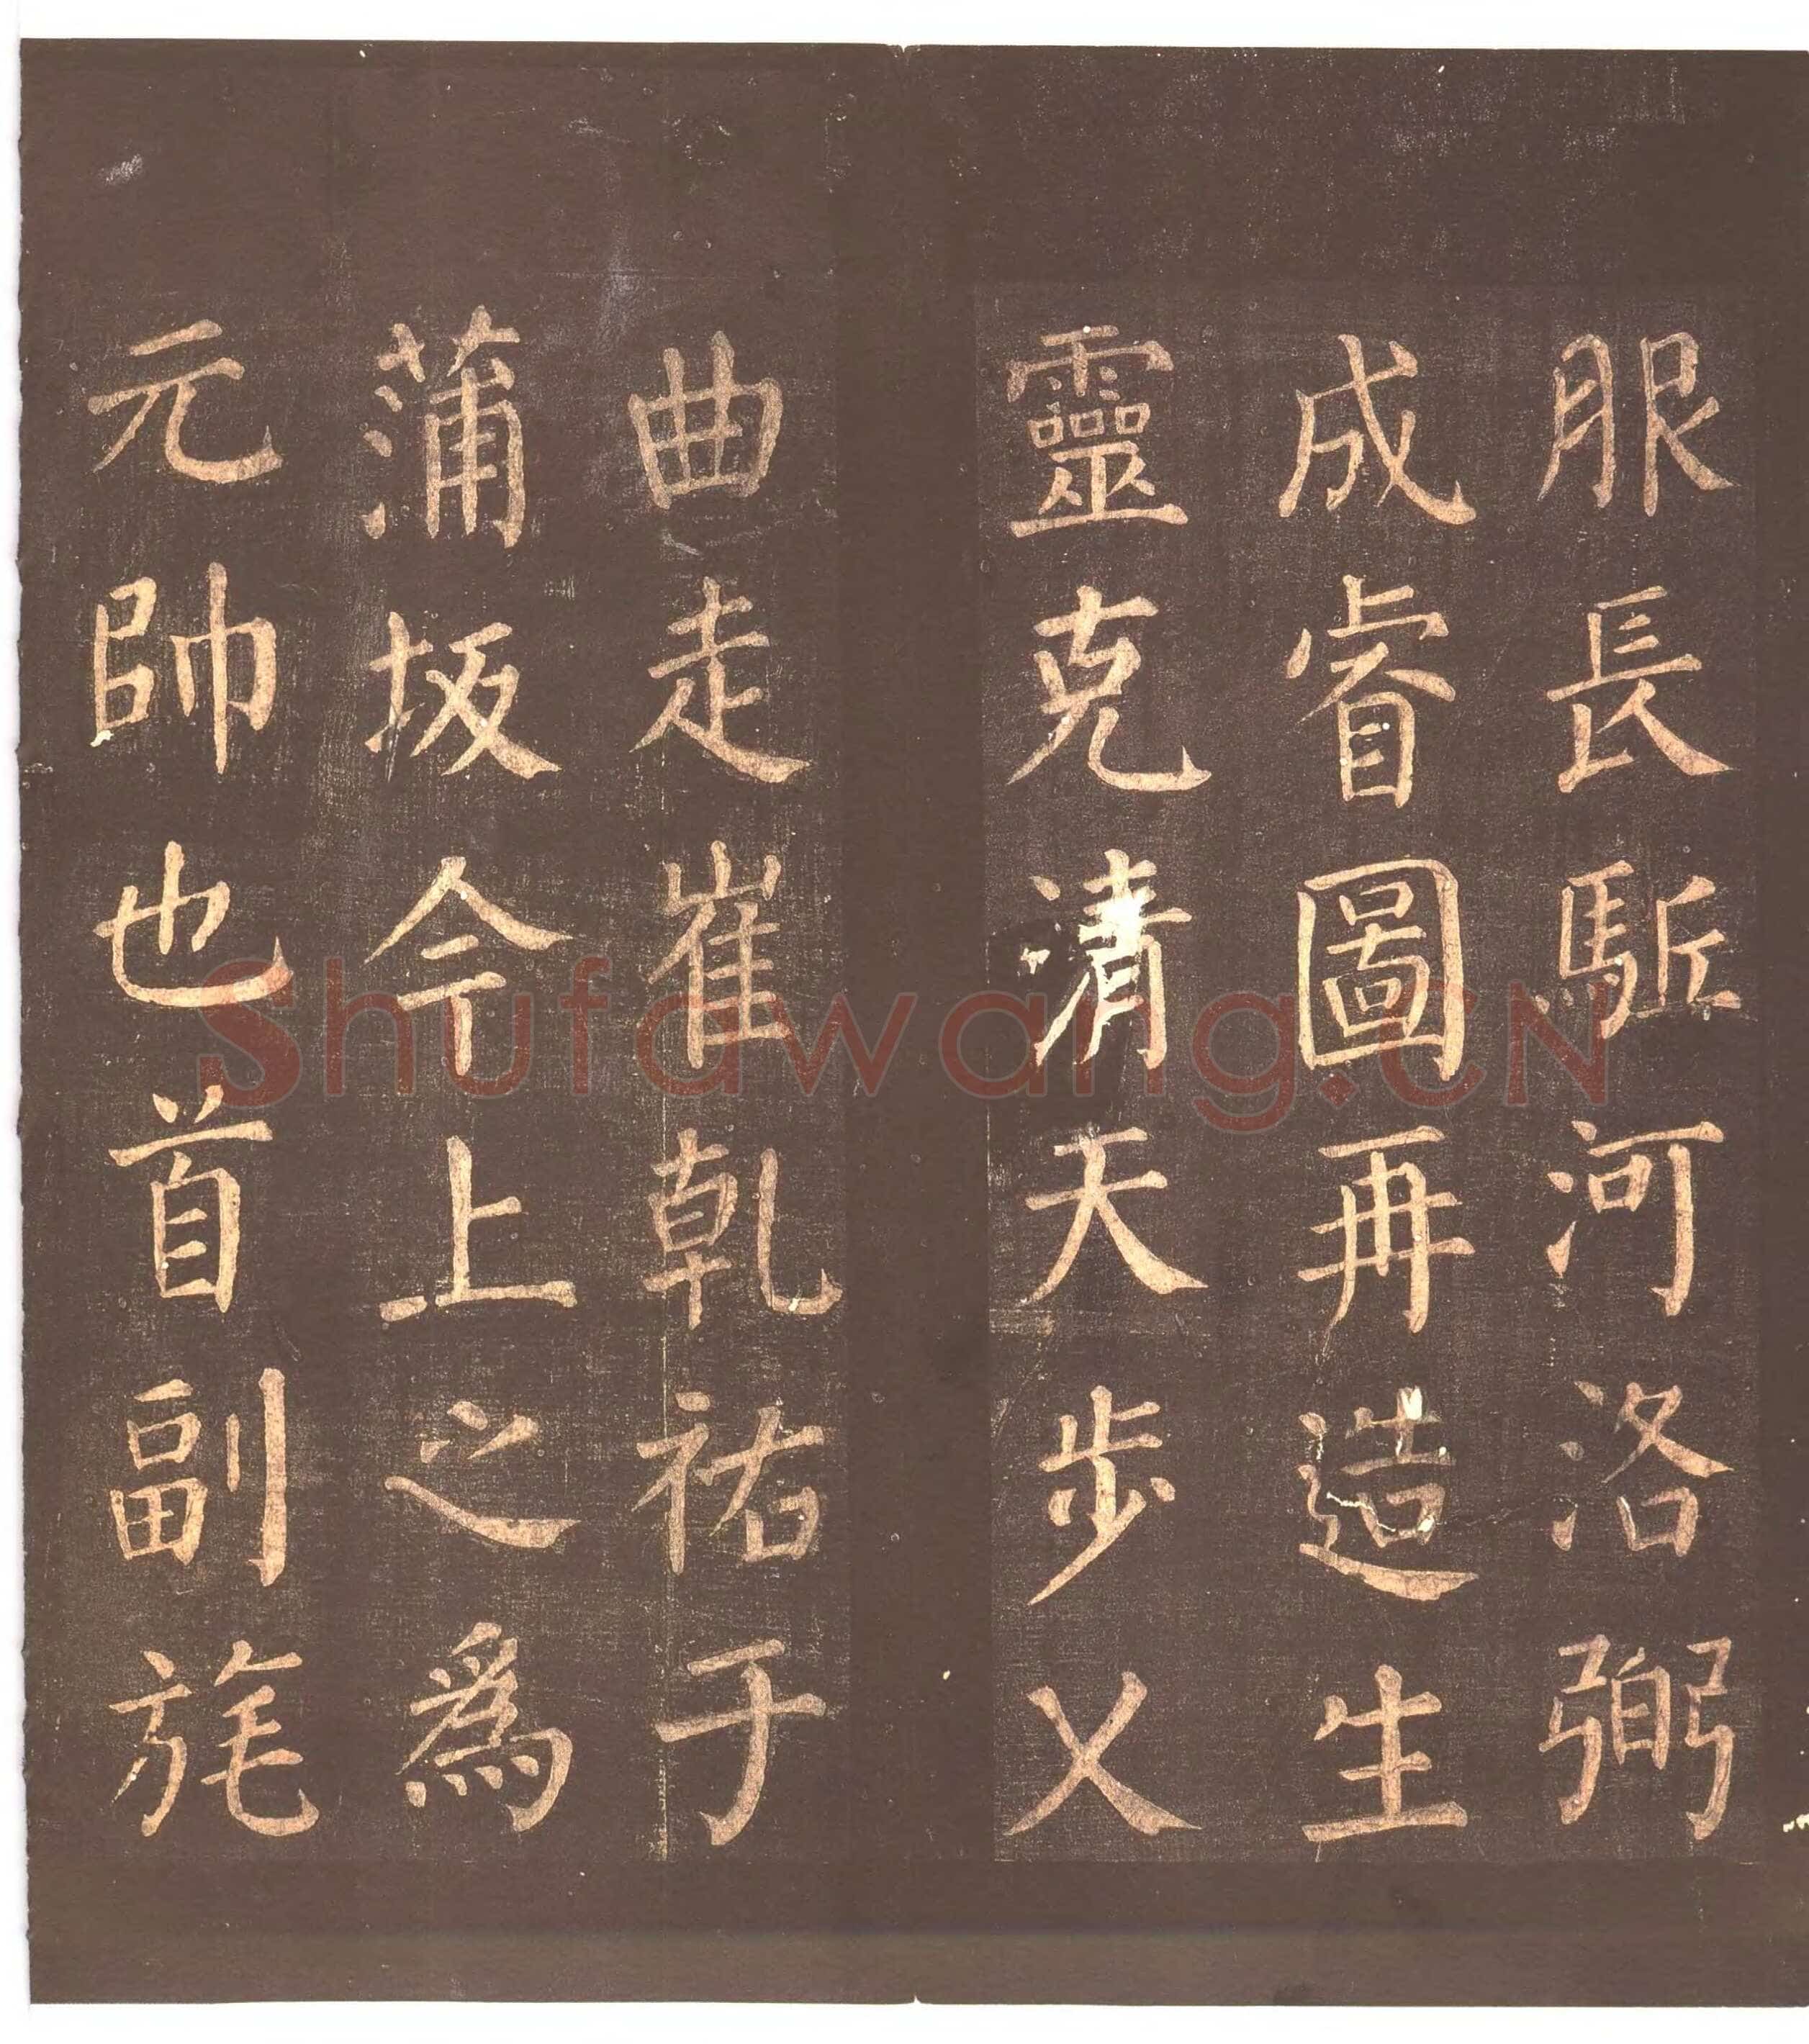 服長駈河洛弼
成睿圖再造生
靈克清天步乂
曲走崔乾祐于
蒲坂今上之為
元帥也首副旄
Shufawang.CN